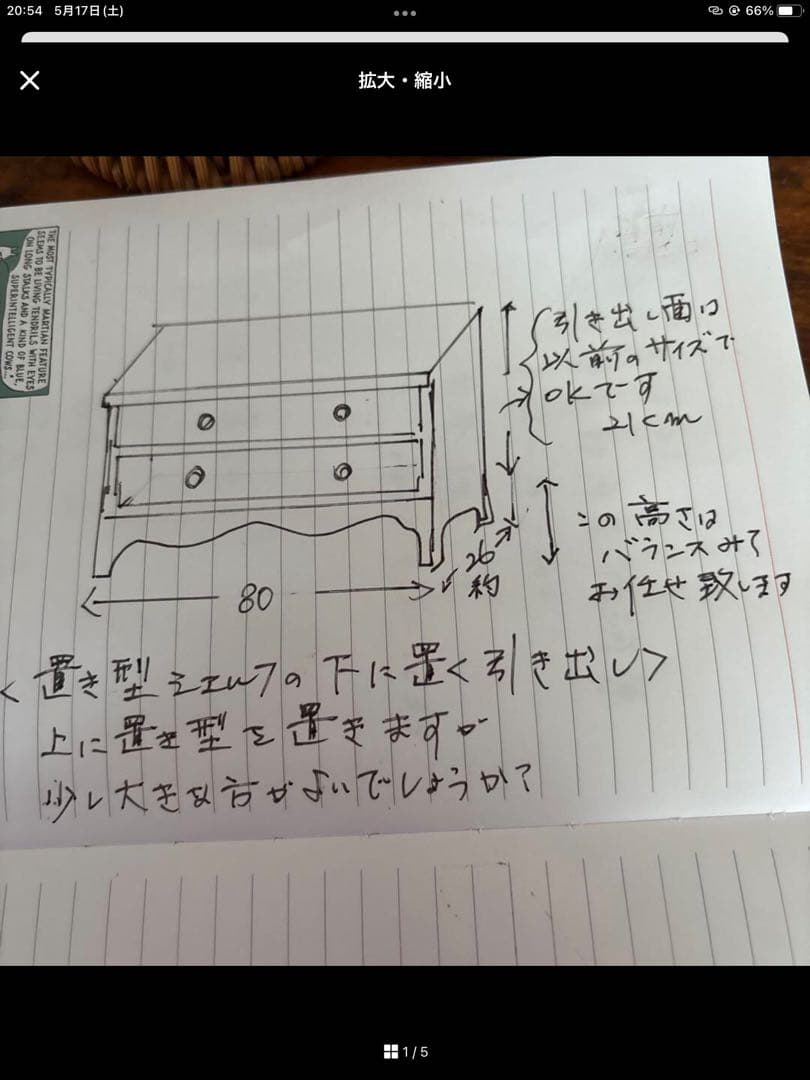 20:54 5月17日(土)
66%
拡大・縮小
THE MOST TYPICALLY MARTIAN FEATURE
SEEMS TO BE LIVING TENDRILS WITH EYES
ON LONG STALKS AND A KIND OF BLUE,
SUPERINTELLIGENT COWS...
引き出し面は
以前のサイズで
OKでーす
21cm
この高さは
バランスみて
お任せ致します
26
約
80
<置き型シェルフの下に置く引き出し>
上に置き型を置きますが
少し大きな方がよいでしょうか?
1/5